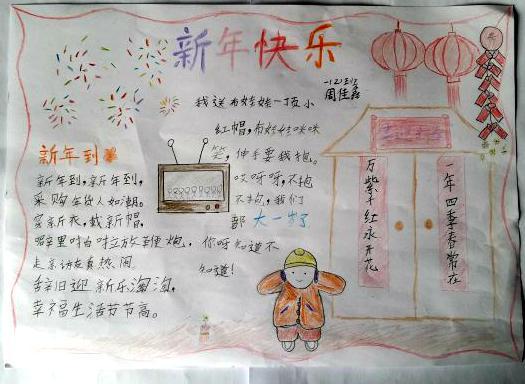 新年快乐
一(2)班
周佳鑫
我送布娃娃一顶小
红帽,布娃娃咪咪
笑,伸手要我抱。
哎呀呀,不抱
不抱,我们
都大一岁了
你呀知道不
知道!
新年到
新年到,新年到,
采购年货人如潮。
穿新衣,戴新帽,
走亲访友真热闹
辞旧迎新乐淘淘,
幸福生活节节高。
万紫千红永开花
一年四季春常在